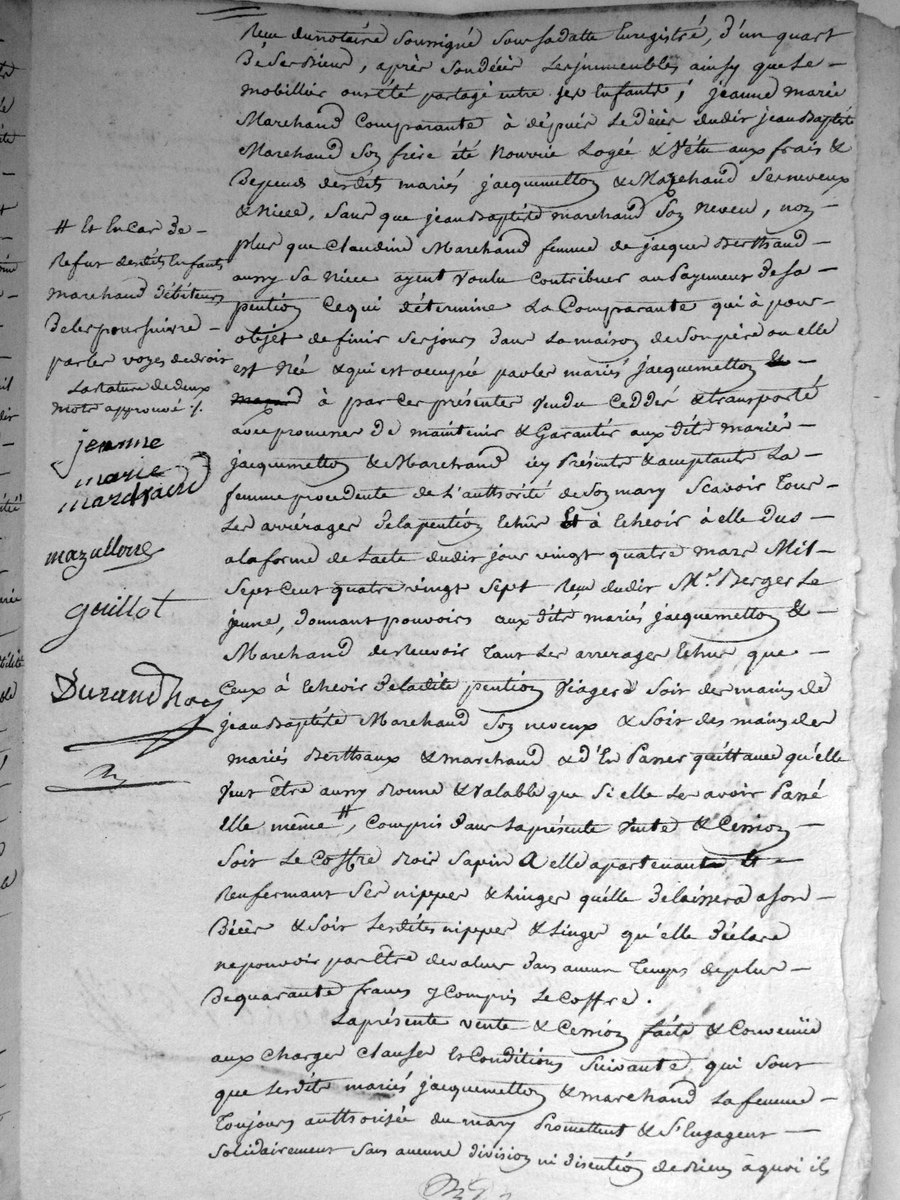 Reçu du notaire soussigné sous sa datte Enregistré, d'un quart
de ses Biens, après son décès les jmmeubles ainsy que le
mobillier ont été partagé entre ses Enfants; jeanne marie
Marchand Comparante à dépuis le décès dudit jean Baptiste
Marchand Son frère été Nourrie Logée & Vétu aux frais &
Depends desdits mariés jacquemetton & Marchand Ses neveux
& Niece, Sans que jean Baptiste marchand Son Neveu, non
plus que Claudine Marchand femme de jacques Berthaud
aussy Sa Niece ayent Voulu contribuer au Payement de sa
pention Ce qui détermine La Comparante qui à pour
objet de finir Ses jours dans La maison de Son père ou elle
est Née & qui est occupée par les mariés jacquemetton
à par Ces présentes Vendu Ceddé & transporté
avec promesse de maintenir & Garantir aux dits mariés
jacquemetton & Marchand icy Présents & acceptants La
femme procedente de L'authorité de Son mary Scavoir Tous
Les arrérages de la pention Echus Et à Echeoir à elle dus
a la forme de L'acte dudit jour vingt quatre mars Mil
Sept Cent quatre vingt Sept Reçu dudit Mr. Berger Le
jeune, donnant pouvoirs aux dits mariés jacquemetton &
Marchand de recevoir Tant Les arrerages Echus que
Ceux à Echeoir de ladite pention Viagere Soit des mains de
jean Baptiste Marchand Son neveux & Soit des mains des
mariés Berthaux & marchand & d'En Passer quittance qu'elle
Veut être aussy Bonne & Valable que Si elle Les avoit Passé
elle même #, Compris dans La présente Vente & Cession
Soit Le Coffre Bois Sapin A elle apartenant
Renfermant Ses nippes & Linges qu'elle delaissera a son
Décès & Soit Lesdites nippes & Linges qu'elle déclare
ne pouvoir pas Être devalues dans aucun Temps de plus
De quarante francs y Compris Le Coffre.
La présente vente & Cession faite & Convenüe
aux Charges Clauses Et Conditions Suivante, qui Sont
que Lesdits mariés jacquemetton & marchand La femme
Toujours authorisée du mary Promettent & S'Engagent
Solidairement Sans aucune division ni discution de Biens à quoi ils
# Et En Cas de
Refus desdits Enfants
marchand débiteurs
de les poursuivre
par les voyes de droit
La rature de deux
mots approuvé ./.
jeanne
marie
marchand
mazallone
guillot
Durand No.